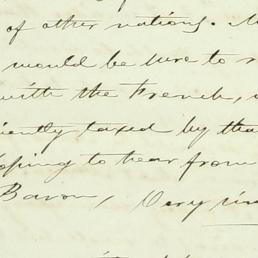 of other nations.
would be sure to
with the French,
taxed by tha
oping to hear from
Baron, Very sin